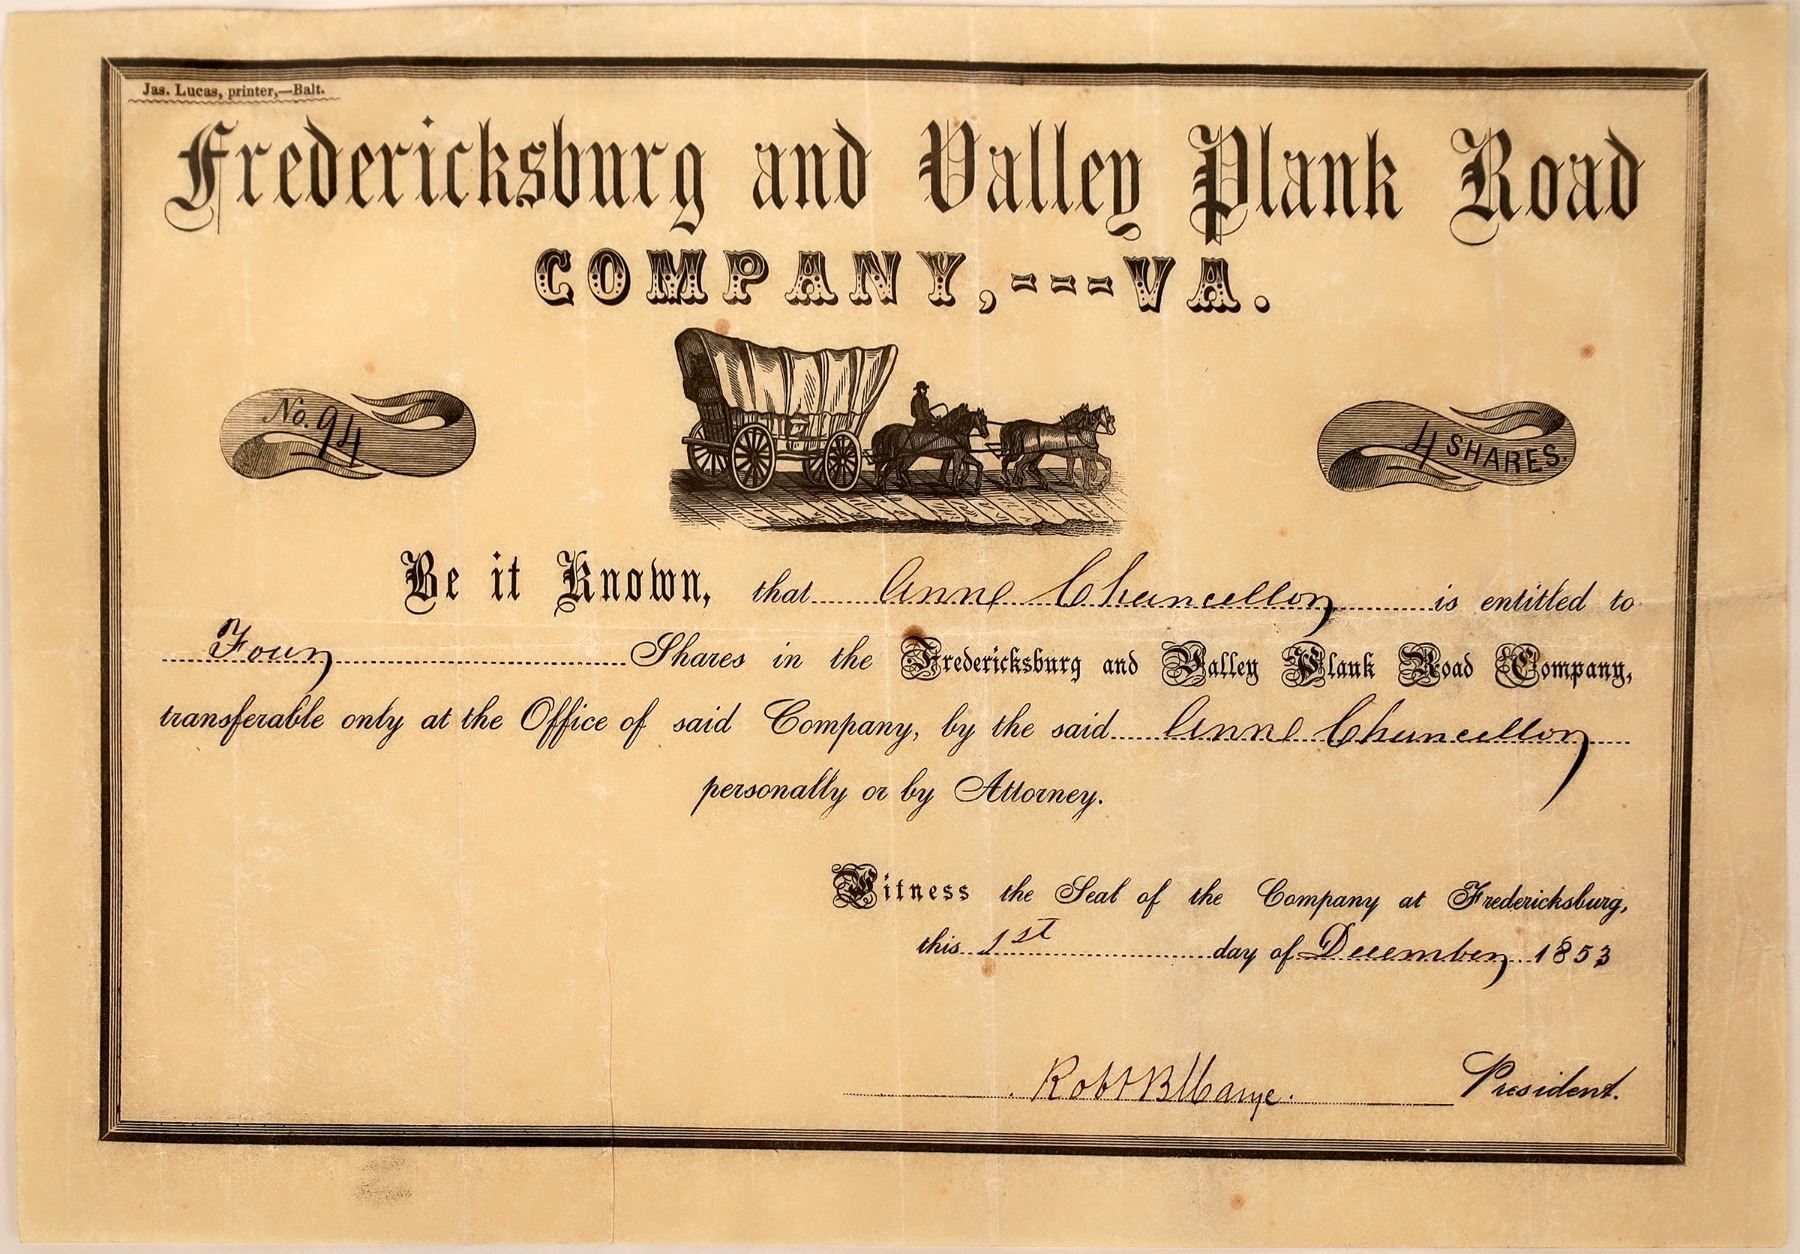 Jas. Lucas, printer,—Balt.
Fredericksburg and Valley Plank Road
COMPANY,---VA.
No. 94
4 SHARES.
Be it Known, that Anne Chancellor is entitled to
Four Shares in the Fredericksburg and Valley Plank Road Company,
transferable only at the Office of said Company, by the said Anne Chancellor
personally or by Attorney.
Witness the Seal of the Company at Fredericksburg,
this 1st day of December 1853
Robt B Marye. President.